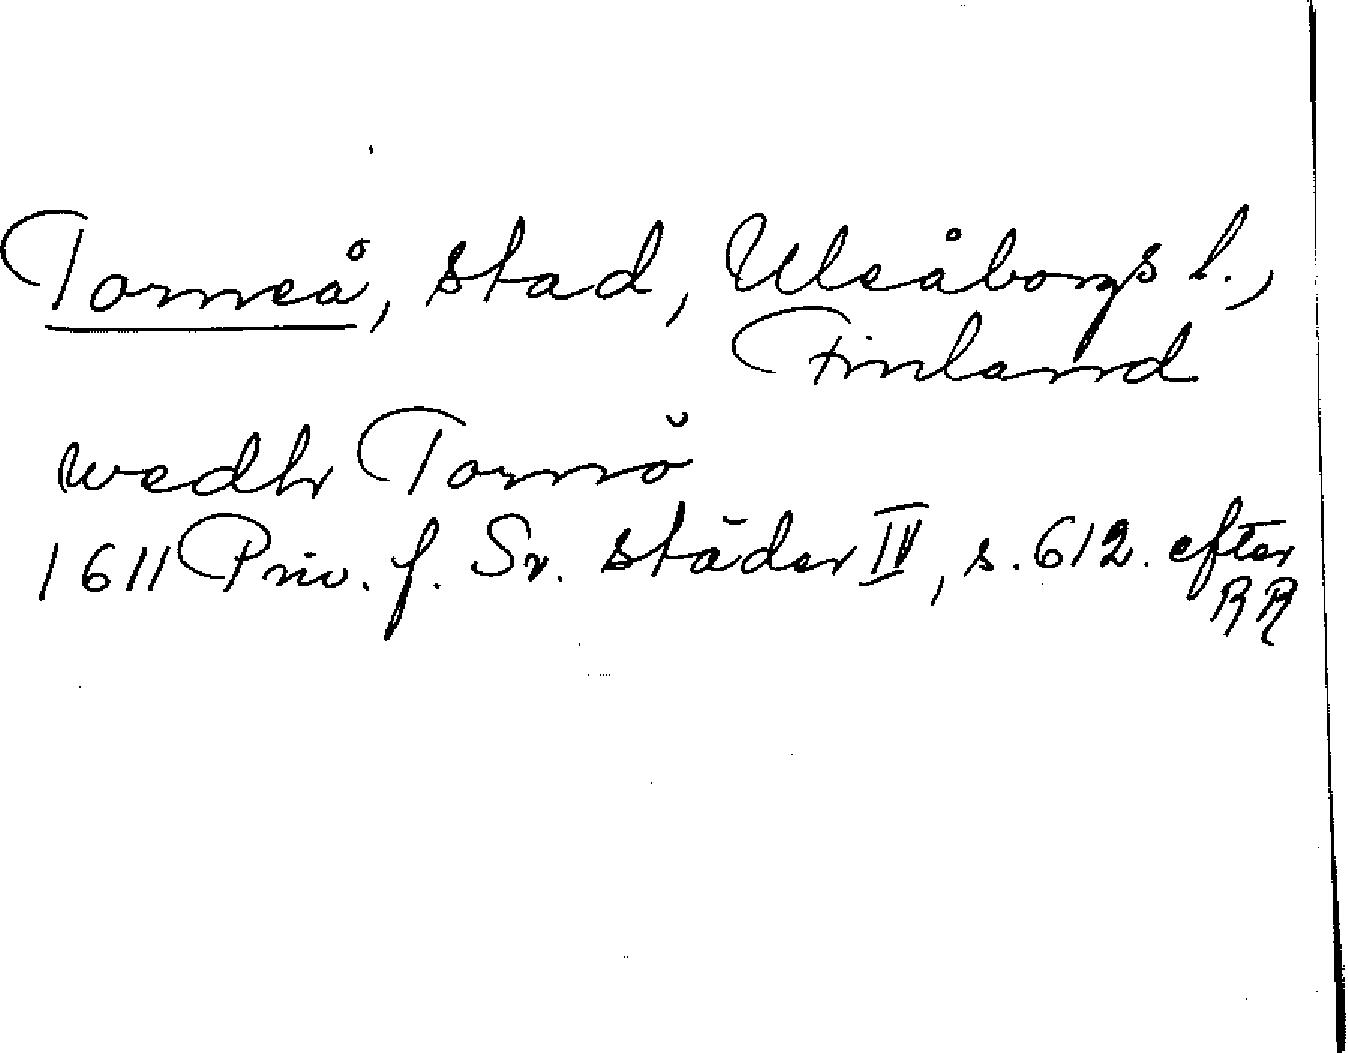 Torneå, stad, Uleåborgs l.,
Finland
wedhr Tornö
1611 Priv. f. Sv. städer IV, s. 612. efter
RR